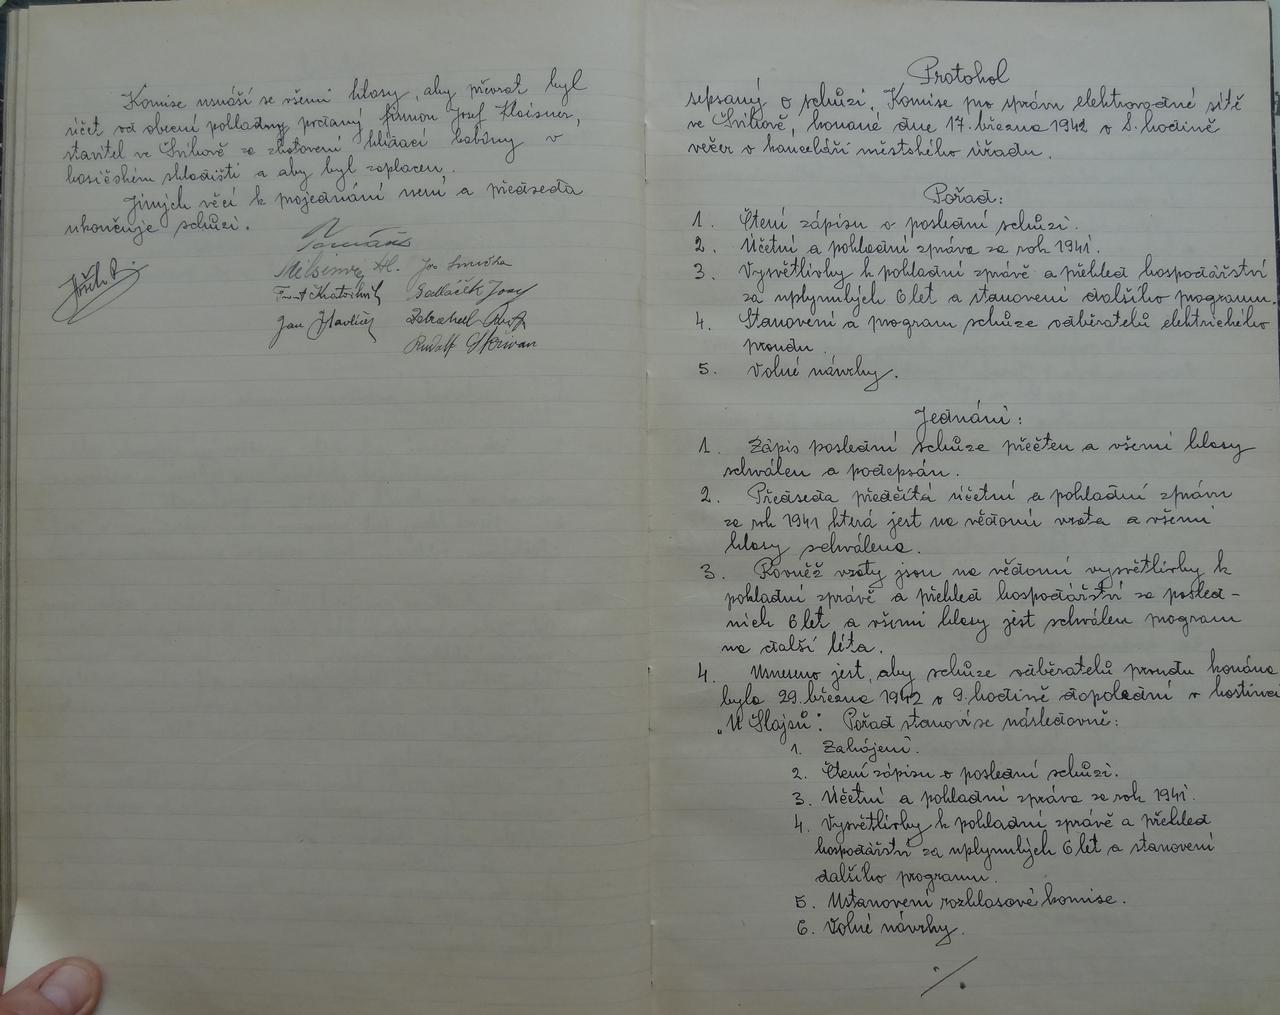 Komise usnáší se všemi hlasy, aby převzat byl
účet od obecní pokladny podaný firmou Josef Klaisner,
stavitel ve Švihově za zhotovení hlídací kabány v
hasičském skladišti a aby byl zaplacen.
Jiných věcí k projednání není a předseda
ukončuje schůzi.
Tomáš
Jos Smrčka
Frant Kratochvíl Sedláček Josef
Jan Havlíček
Rudolf Skřivan
Protokol
sepsaný o schůzi, Komise pro správu elektrovodné sítě
ve Švihově, konané dne 17. března 1942 o 8. hodině
večer v kanceláři městského úřadu.
Pořad:
1. Čtení zápisu o poslední schůzi.
2. Účetní a pokladní zpráva za rok 1941.
3. Vysvětlivky k pokladní zprávě a přehled hospodářství
za uplynulých 6 let a stanovení dalšího programu.
4. Stanovení a program schůze odběratelů elektrického
proudu.
5. Volné návrhy.
Jednání:
1. Zápis poslední schůze přečten a všemi hlasy
schválen a podepsán.
2. Předseda předčítá účetní a pokladní zprávu
za rok 1941 která jest na vědomí vzata a všemi
hlasy schválena.
3. Rovněž vzaty jsou na vědomí vysvětlivky k
pokladní zprávě a přehled hospodářství za posled-
ních 6 let a všemi hlasy jest schválen program
na další léta.
4. Usneseno jest, aby schůze odběratelů proudu konána
byla 29. března 1942 o 9. hodině dopolední v hostinci
„U Šlajsů". Pořad stanoví se následovně:
1. Zahájení.
2. Čtení zápisu o poslední schůzi.
3. Účetní a pokladní zpráva za rok 1941.
4. Vysvětlivky k pokladní zprávě a přehled
hospodářství za uplynulých 6 let a stanovení
dalšího programu.
5. Ustanovení rozhlasové komise.
6. Volné návrhy.
./.